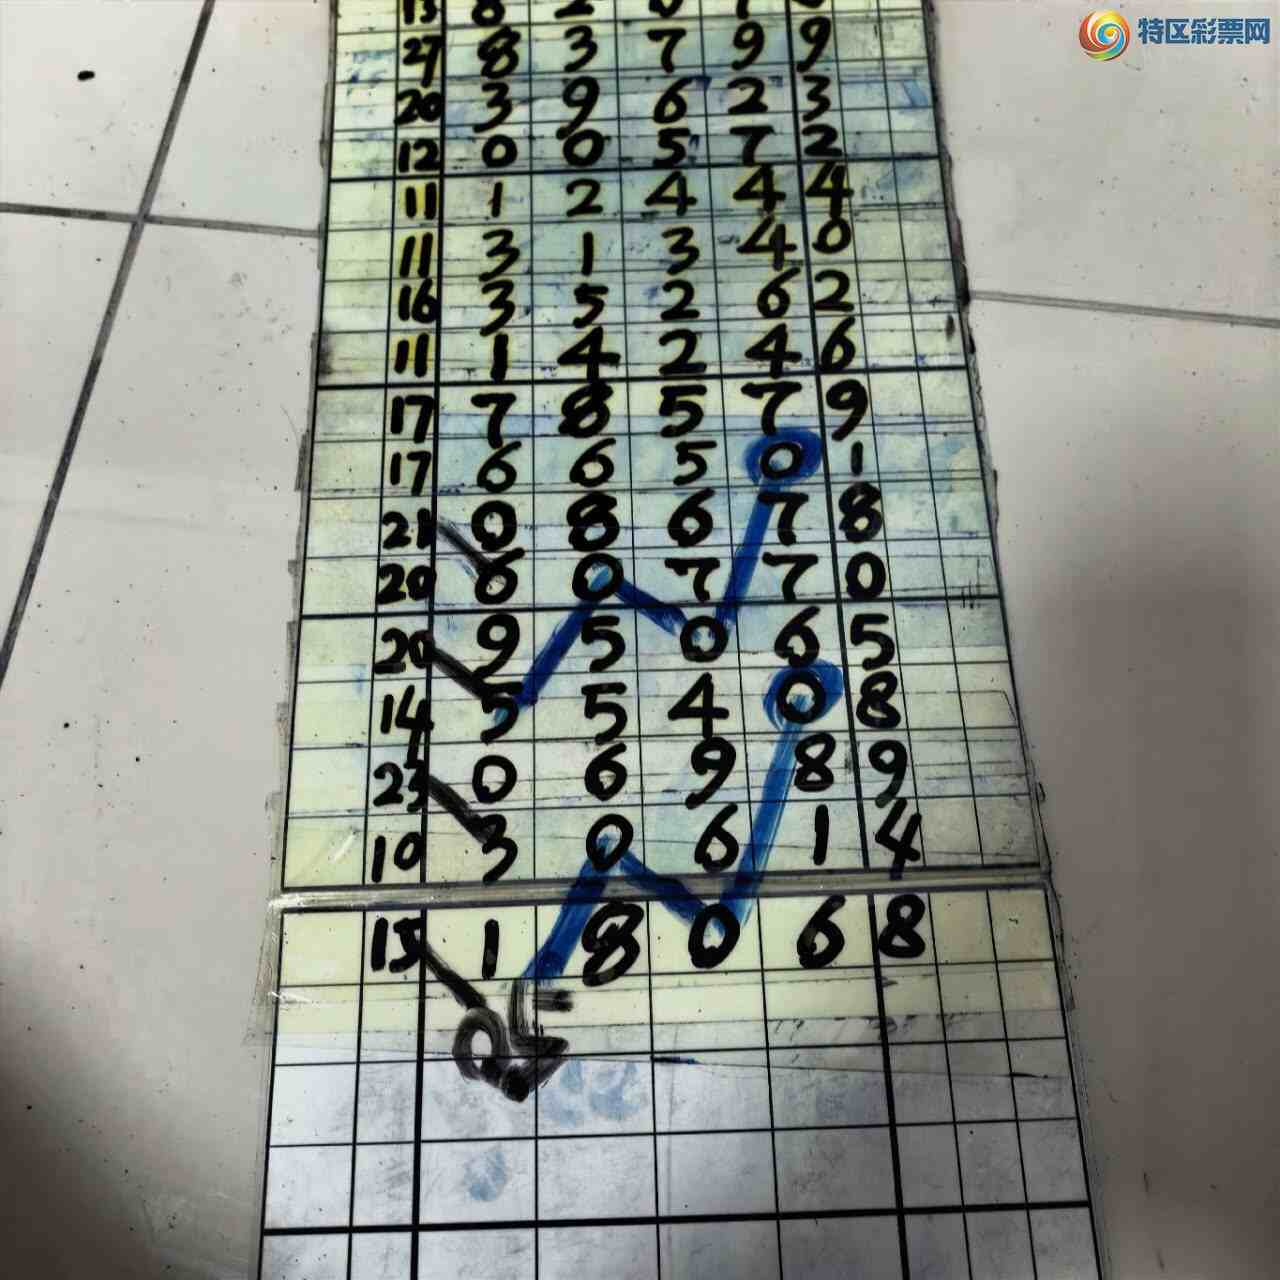 特区彩票网
27 8 3 7 9 9
20 3 9 6 2 3
12 0 0 5 7 2
11 1 2 4 4 4
11 3 1 3 4 0
16 3 5 2 6 2
11 1 4 2 4 6
17 7 8 5 7 9
17 6 6 5 0 1
21 0 8 6 7 8
20 6 0 7 7 0
20 9 5 0 6 5
14 5 5 4 0 8
23 0 6 9 8 9
10 3 0 6 1 4
15 1 8 0 6 8